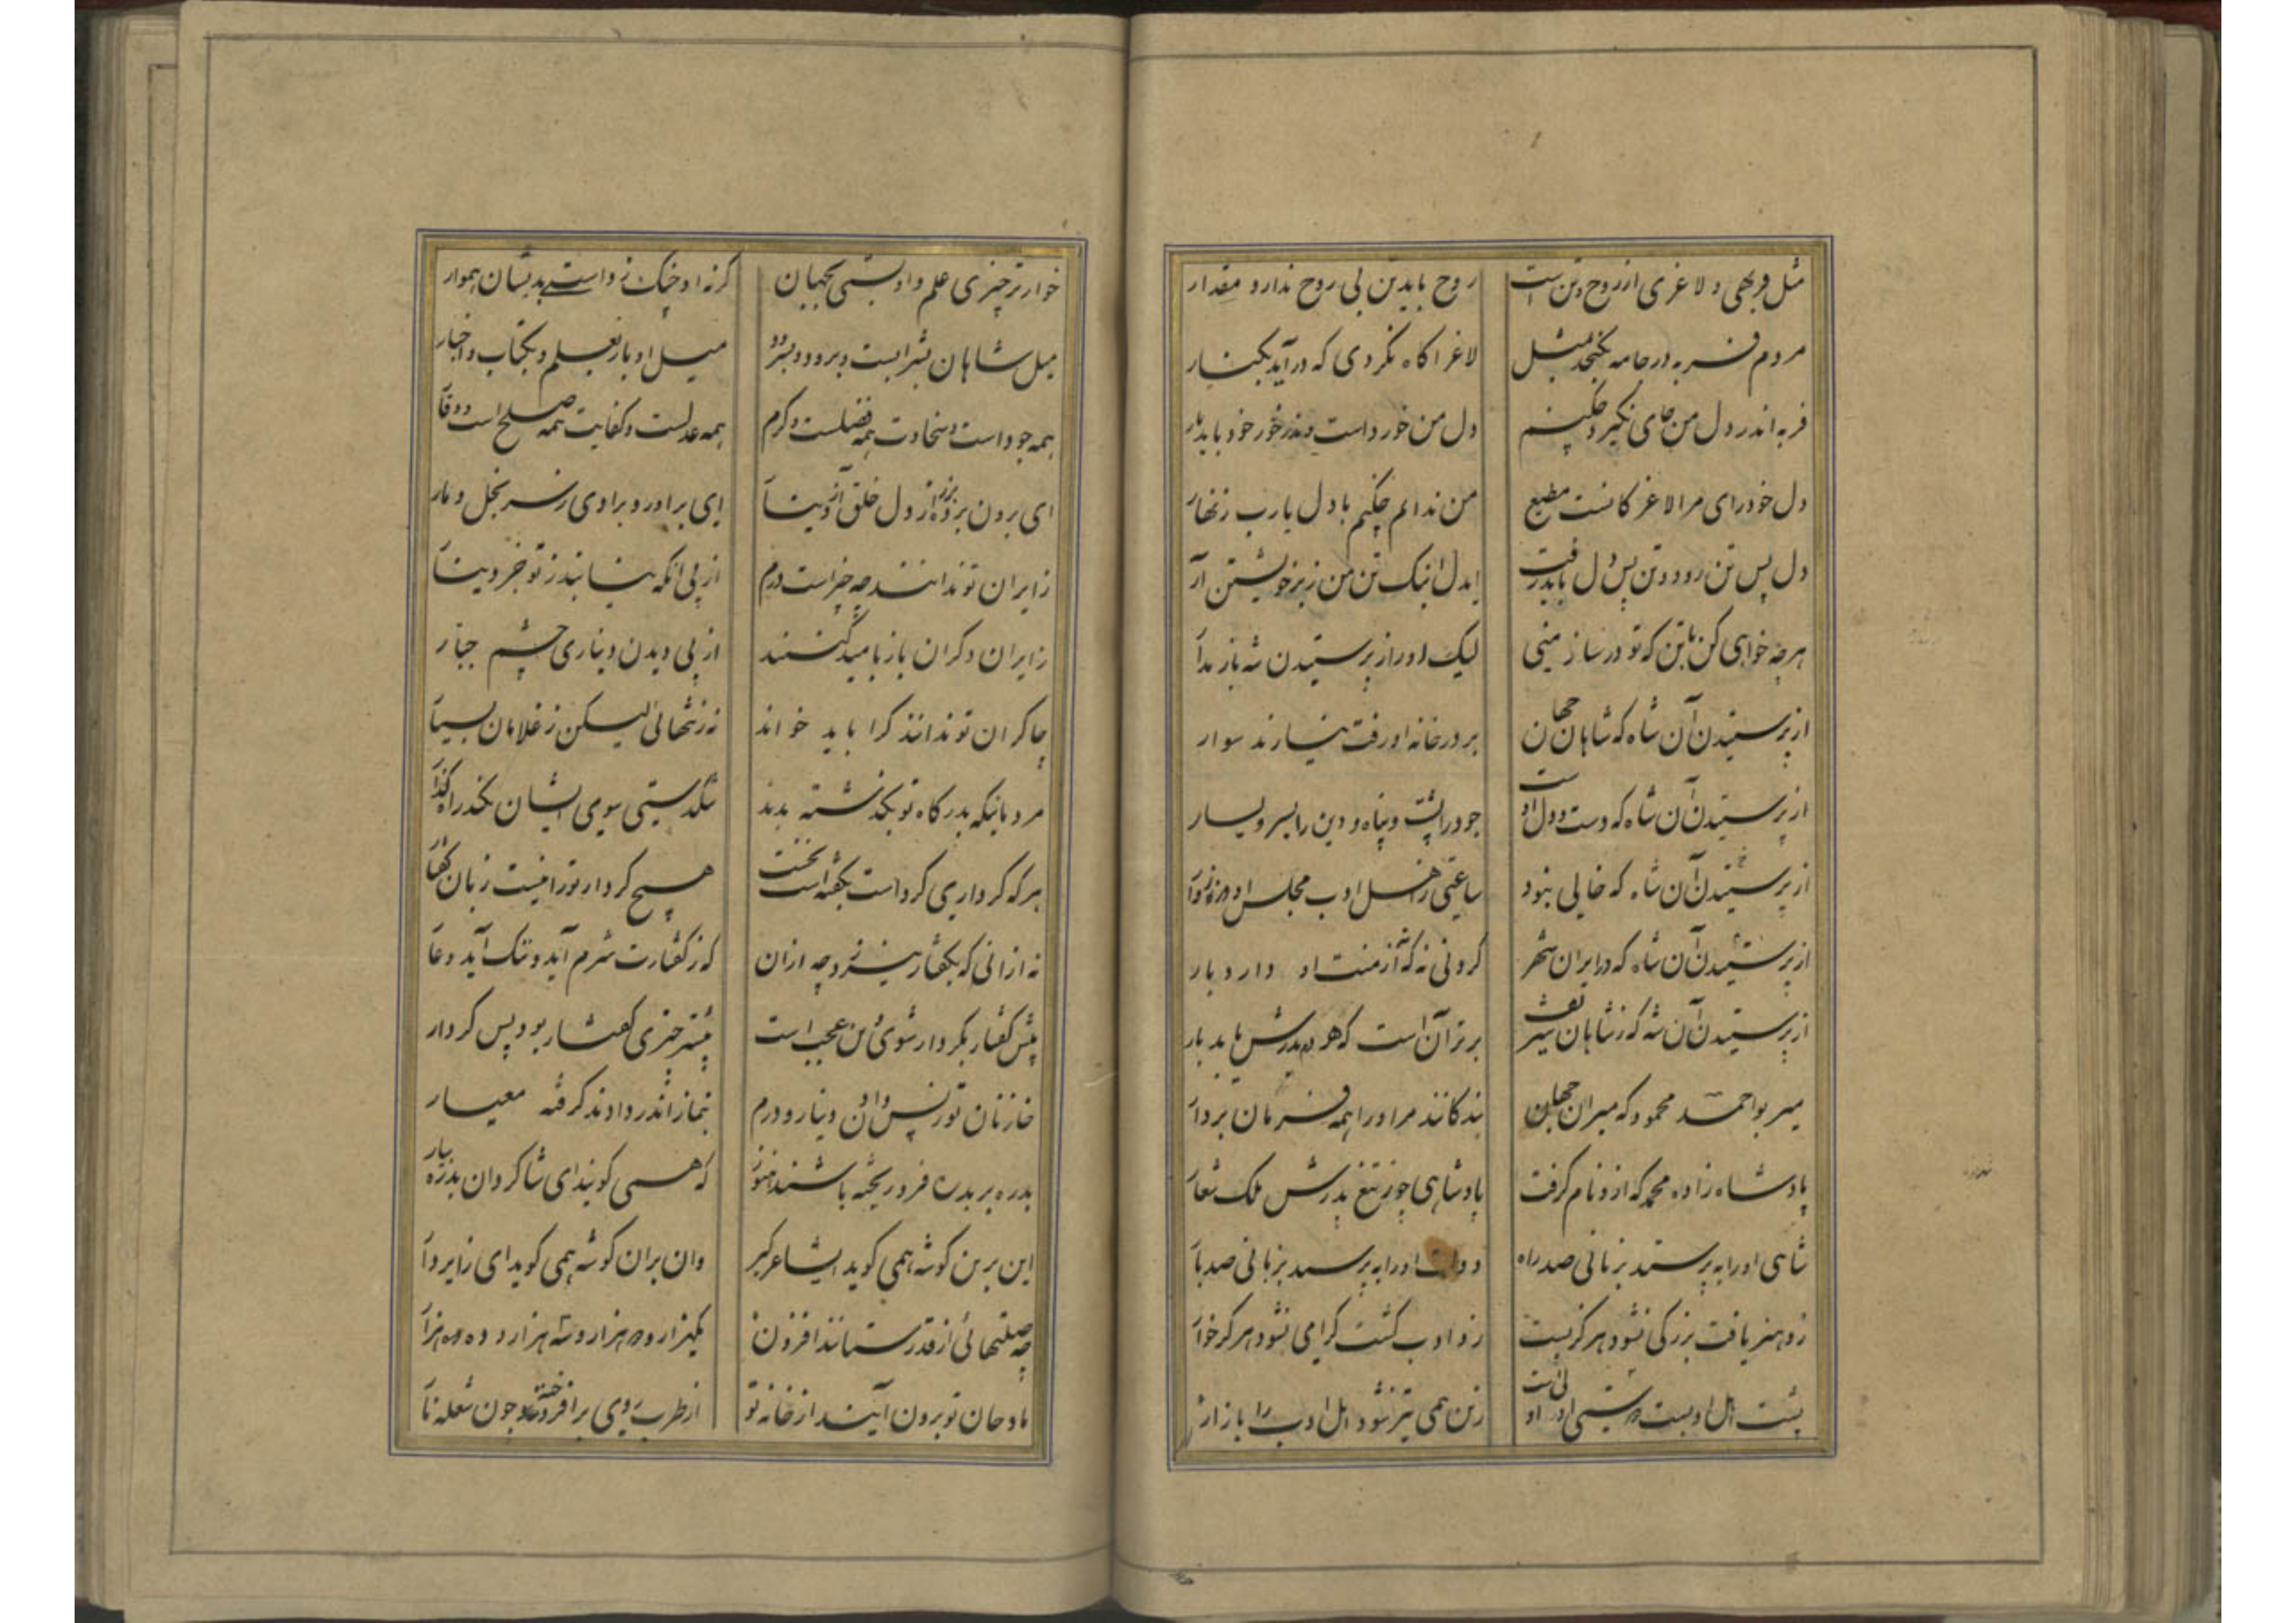 مثل فربهی و لاغری از روح و تن است روح باید تن بی روح ندارد مقدار
مردم فربه در جامه نگنجد بمثل لاغر آگاه نگردی که درآید بکنار
فربه اندر دل من جای نگیرد چکنم دل من خورد است و اندر خور خود باید یار
دل خودرای مرا لاغرکانست مطیع من ندانم چکنم با دل یارب زنهار
دل پس تن رود و تن پس دل باید رفت ایدل اینک تن من زیر خویشتن آر
هرچه خواهی کن با تن که تو درساز منی لیک او را ز پرستیدن شه باز مدار
از پرستیدن آن شاه که شاهان جهان بر در خانه او رفت نیارند سوار
از پرستیدن آن شاه که دست و دل اوست جود را پشت و پناه و دین را یسر و یسار
از پرستیدن آن شاه که خالی نبود ساعتی ز اهل ادب مجلس او
از پرستیدن آن شاه که در ایران شهر گردنی نه که از منت او دارد بار
از پرستیدن آن شه که ز شاهان برتر آن است که پدرش باید بار
میر بو احمد محمود که میران جهان بندگانند مر او را همه فرمان بردار
پادشاه زاده محمد که ازو نام گرفت پادشاهی چو ز تیغ پدرش ملک شعار
شاهی او را به پرستد بزمانی صد راه دولت او را به پرستد بزمانی صد بار
زو هنر یافت بزرگی نشود هرگز پست زو ادب گشت گرامی نشود هرگز خوار
پشت اهل ادبست زین همی تیز شود اهل ادب را بازار
خوارتر چیزی علم و ادبستی بجهان گر نه او چنگ زدستی بدیشان هموار
میل شاهان بشرابست و برود و بسرود میل او باز بعلم و بکتاب و اخبار
همه جود است و سخاوت همه فضلست و کرم همه عدلست و کفایت همه صلح است و وقار
ای برون برده از دل خلق آز و نیاز ای برآورده برادی ز سر بخل دمار
زایران تو ندانند چه چیز است درم از پی آنکه نیابند ز تو جز دینار
زایران دگران باز بامید کنند از پی دیدن دیناری چشم چار
چاکران تو ندانند کرا باید خواند نه ز تنهائی لیکن ز غلامان بسیار
مردمانیکه بدرگاه تو بگذشته بدند تنگدستی سوی ایشان نکند راهگذار
هر که کرداری کرد است بگفته است نخست هیچ کردار تو را نیست زبان گفتار
نه ازانی که بگفتار نیرزد چه ازان که ز گفتارت شرم آید و ننگ آید و عار
پیش گفتار بکردار شوی این عجب است پیشتر چیزی گفتار بود پس کردار
خازنان تو ز پس دادن دینار و درم بنماز اندر دارند گرفته معیار
بدره بر بدره فرو ریخته باشند هنوز که همی گویند ای شاگردان بدره بیار
این برین گوشه همی گوید ای شاعر گیر وان بران گوشه همی گوید ای زایر دار
چه صلتهائی از قدر ستانند افزون یکهزار و دو هزار و سه هزار و ده هزار
مادحان تو برون آیند از خانه تو از طرب روی برافروخته چون شعله نار